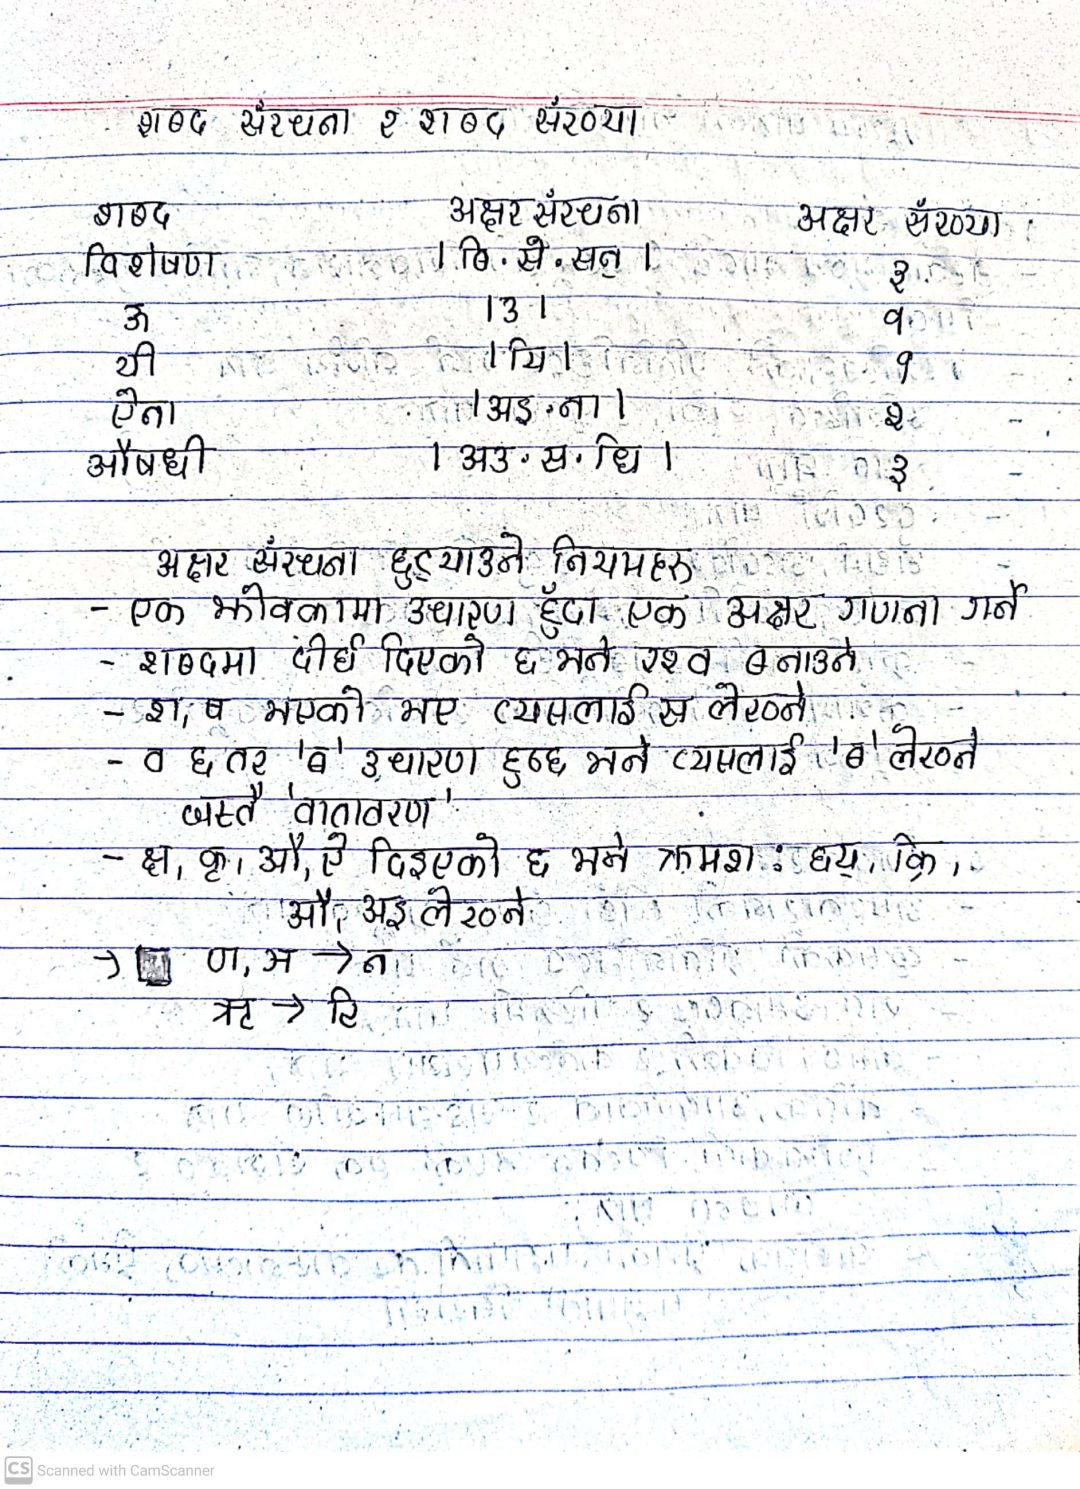 शब्द संरचना र शब्द संख्या
शब्द अक्षर संरचना अक्षर संख्या
विशेषण । बि . से . सन् । ३
ऊ । उ । १
यी । यि । १
ऐना । अइ . ना । २
औषधी । अउ . स . धि । ३
अक्षर संरचना छुट्याउने नियमहरु
- एक झोक्कामा उचारण हुँदा एक अक्षर गणना गर्ने
- शब्दमा दीर्घ दिएको छ भने रश्व बनाउने
- श, ष भएको भए त्यसलाई स लेख्ने
- व छ तर 'ब' उचारण हुन्छ भने त्यसलाई 'ब' लेख्ने
जस्तै 'वातावरण'
- क्ष, कृ, औ, ऐ दिइएको छ भने क्रमश : छय्, क्रि,
औ, अइ लेख्ने
→ ण, ञ → न
ऋ → रि
CS Scanned with CamScanner